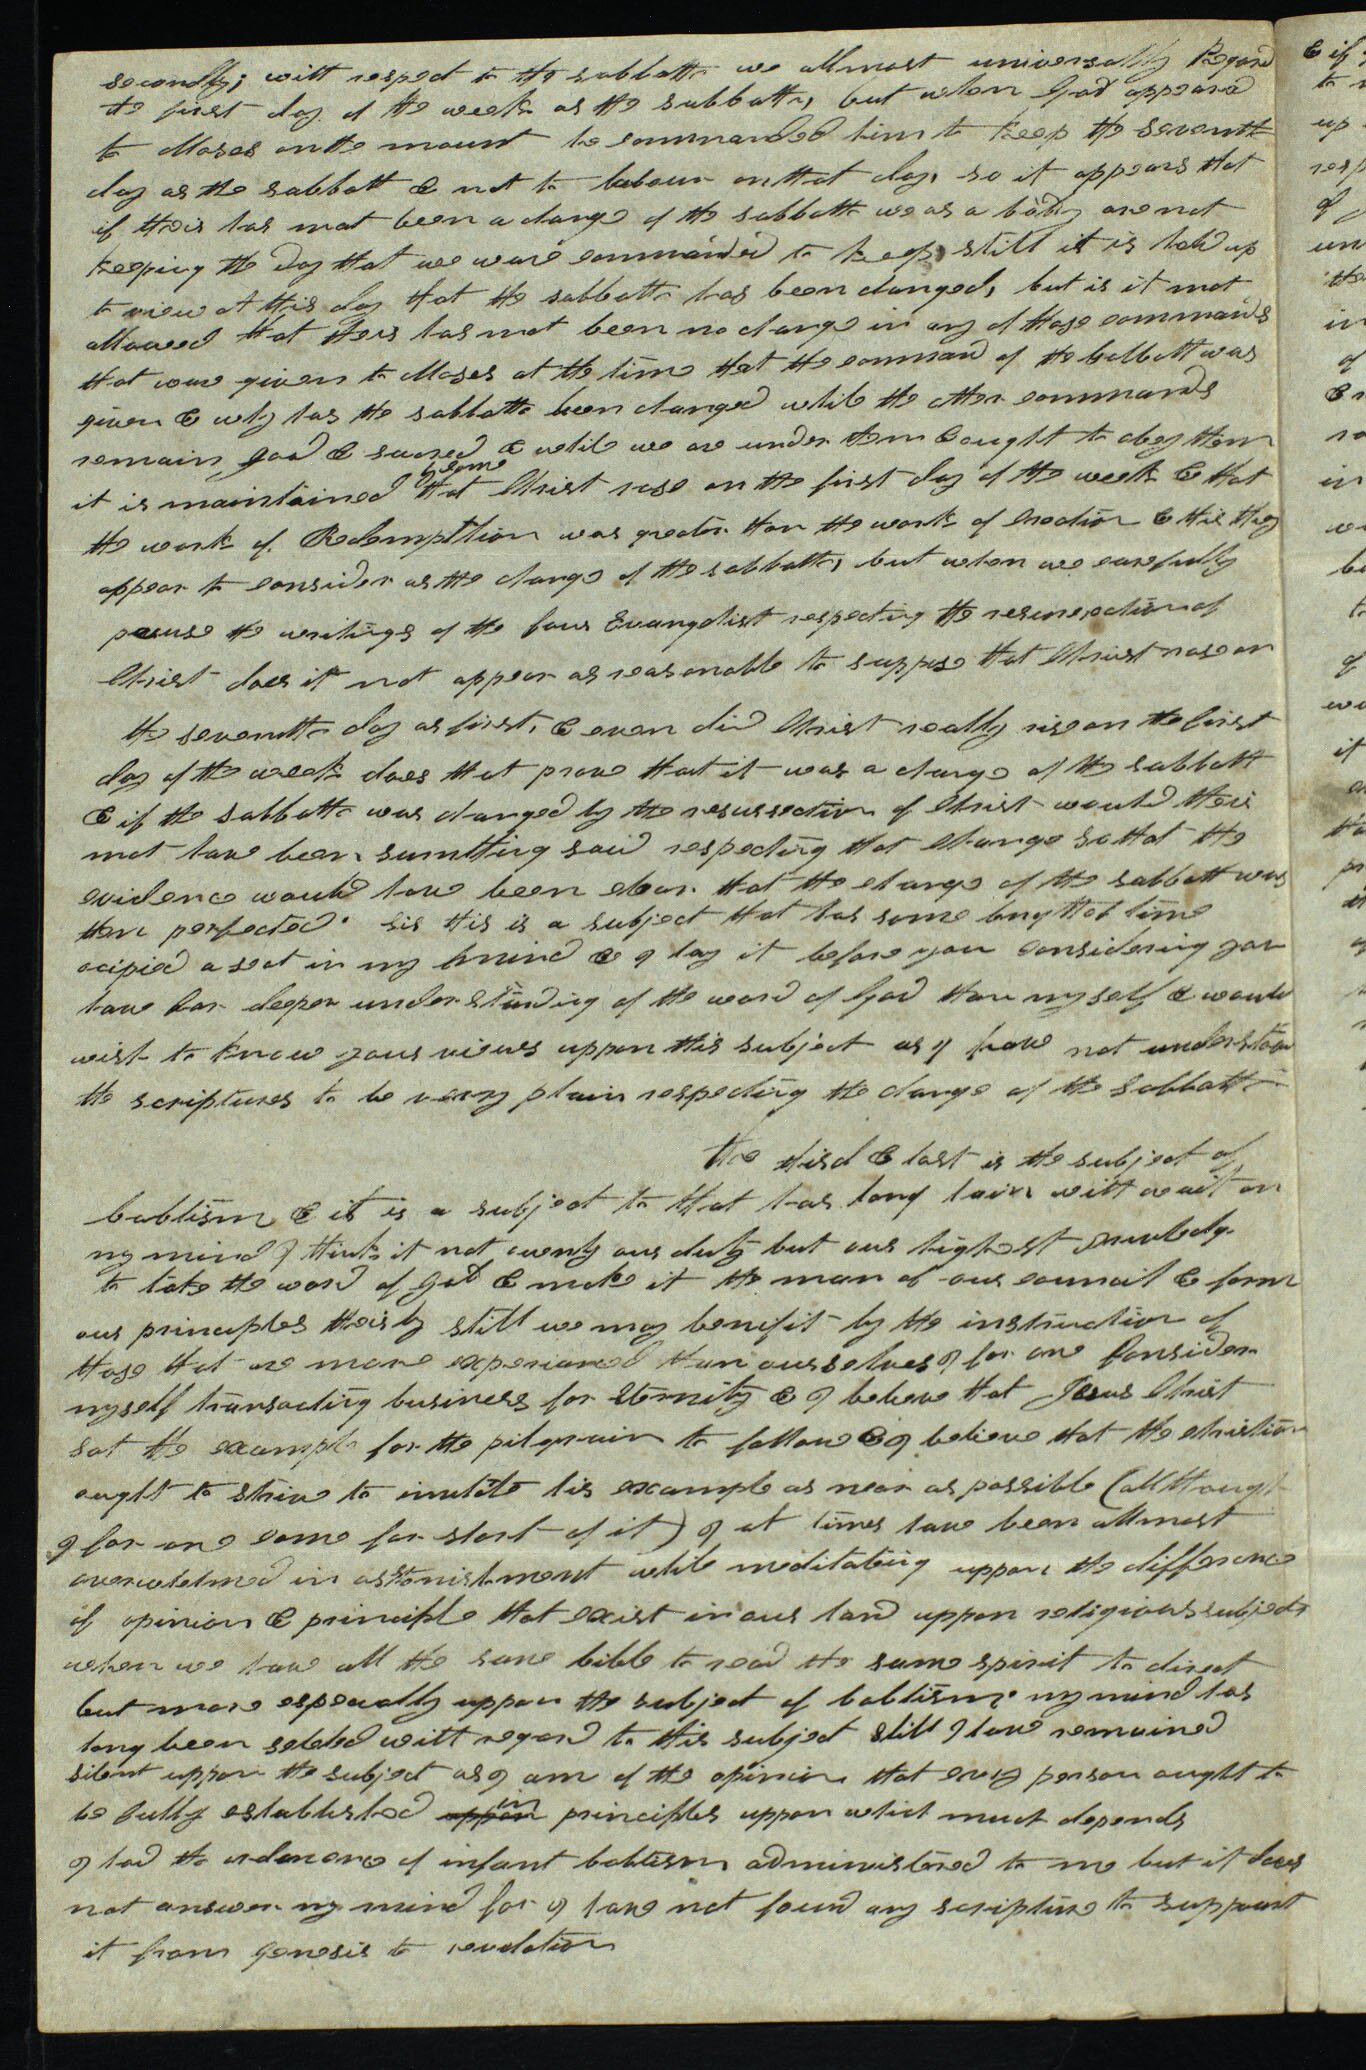 secondly; with respect to the sabbath we allmost universally Regard
the first day of the week as the sabbath, but when God appeared
to Moses on the mount he commanded him to keep the seventh
day as the sabbath & not to labour on that day, so it appears that
if theis has not been a change of the sabbath we as a body are not
keeping the day that we ware commanded to keep, still it is held up
to view at this day that the sabbath has been changed, but is it not
allowed that theis has not been no change in any of those commands
that ware given to Moses at the time that the command of the sabbath was
given & why has the sabbath been changed while the other commands
remain good & sacred & while we are under them & ought to obey them
it is maintained by some that Christ rose on the first day of the week & that
the work of Redempttion was greater than the work of Creation & this they
appear to consider as the change of the sabbath, but when we carefully
peruse the writings of the four Evangelist respecting the resurrection of
Christ does it not appear as reasonable to suppose that Christ rose on
the seventh day as first, & even did Christ really rise on the first
day of the week does that prove that it was a change of the sabbath
& if the sabbath was changed by the resurrection of Christ would theis
not have been sumthing said respecting that change so that the
evidence would have been clear that the change of the sabbath was
then perfected. Sir this is a subject that has some length of time
ocipied a seat in my mind & I lay it before you considering you
have far deeper understanding of the word of God than myself & would
wish to know your views uppon this subject as I have not understood
the scriptures to be verry plain respecting the change of the Sabbath
The third & last is the subject of
babtism & it is a subject to that has long lain with wait on
my mind I think it not ounly our duty but our highest priviledge
to take the word of God & make it the man of our council & form
our principles theisby still we may benifit by the instruction of
those that are more experianced than ourselves I for one Consider
myself transacting business for Eternity & I believe that Jesus Christ
sat the example for the pilgraim to follow & I believe that the christian
ought to strive to imitate his example as near as possible (allthough
I for one come far short of it) I at times have been allmost
overwhelmed in astonishment while meditateing uppon the difference
of opinion & principle that exist in our land uppon religious subjects
when we have all the same bible to read the same spirit to direct
but more especially uppon the subject of babtism. my mind has
long been seteled with regard to this subject still I have remained
silent uppon the subject as I am of the opinion that every person ought to
be fully established uppon in principles uppon which much depends
I had the ordenance of infant babtism administered to me but it does
not answer my mind for I have not found any scripture to suppourt
it from Genesis to revelation